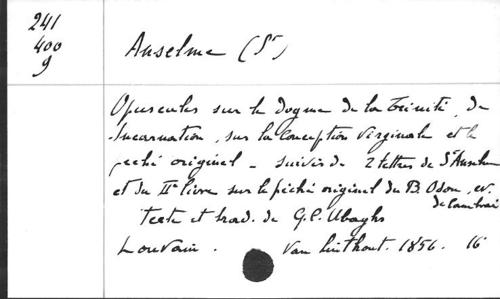 241
400
9
Anselme (St)
Opuscules sur le Dogme de la Trinité, de
l'Incarnation, sur la Conception Virginale et le
péché originel - suivis de 2 lettres de St Anselme
et du IIe livre sur le péché originel du B. Odon, ev.
de Cambrai
Texte et trad. de G. C. Ubaghs
Louvain. Van Linthout. 1856. 16